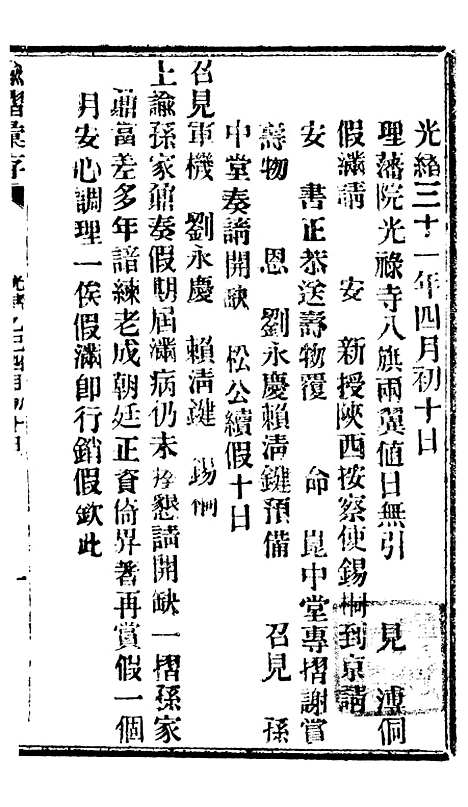 光緒三十一年四月初十日
理藩院光祿寺八旗兩翼值日無引　見　溥侗
假滿請　安　新授陝西按察使錫桐到京請
安　書正恭送壽物覆　命　崑中堂專摺謝賞
壽物　恩　劉永慶賴清鍵預備　召見　孫
中堂奏請開缺　松公續假十日
召見軍機　劉永慶　賴清鍵　錫桐
上諭孫家鼐奏假期屆滿病仍未痊懇請開缺一摺孫家
鼐當差多年諳練老成朝廷正資倚畀著再賞假一個
月安心調理一俟假滿即行銷假欽此
諭摺彙存
光緒乙巳四月初十日
一